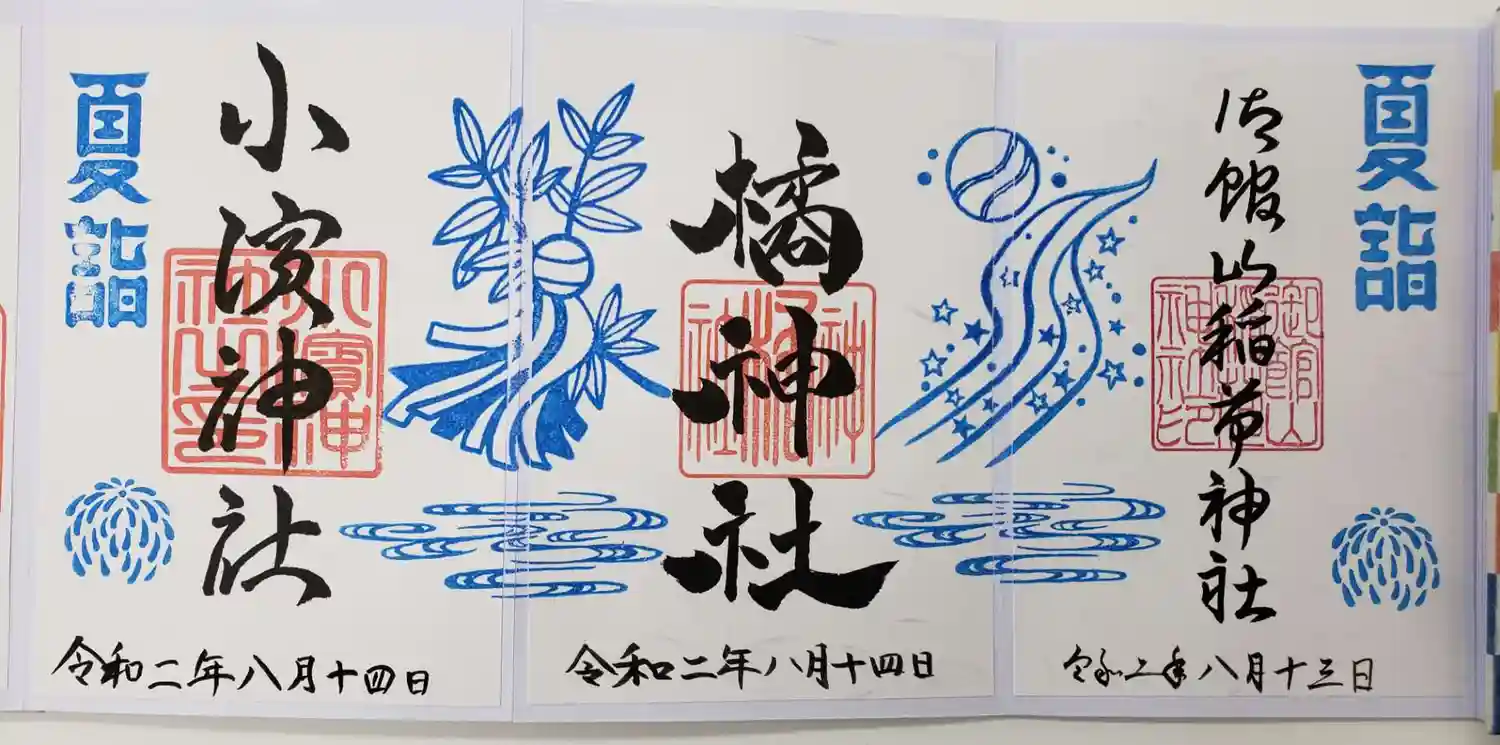 夏詣
御館山稲荷神社
御館山稲荷神社印
令和二年八月十三日
橘神社
橘神社
令和二年八月十四日
夏詣
小濱神社
令和二年八月十四日